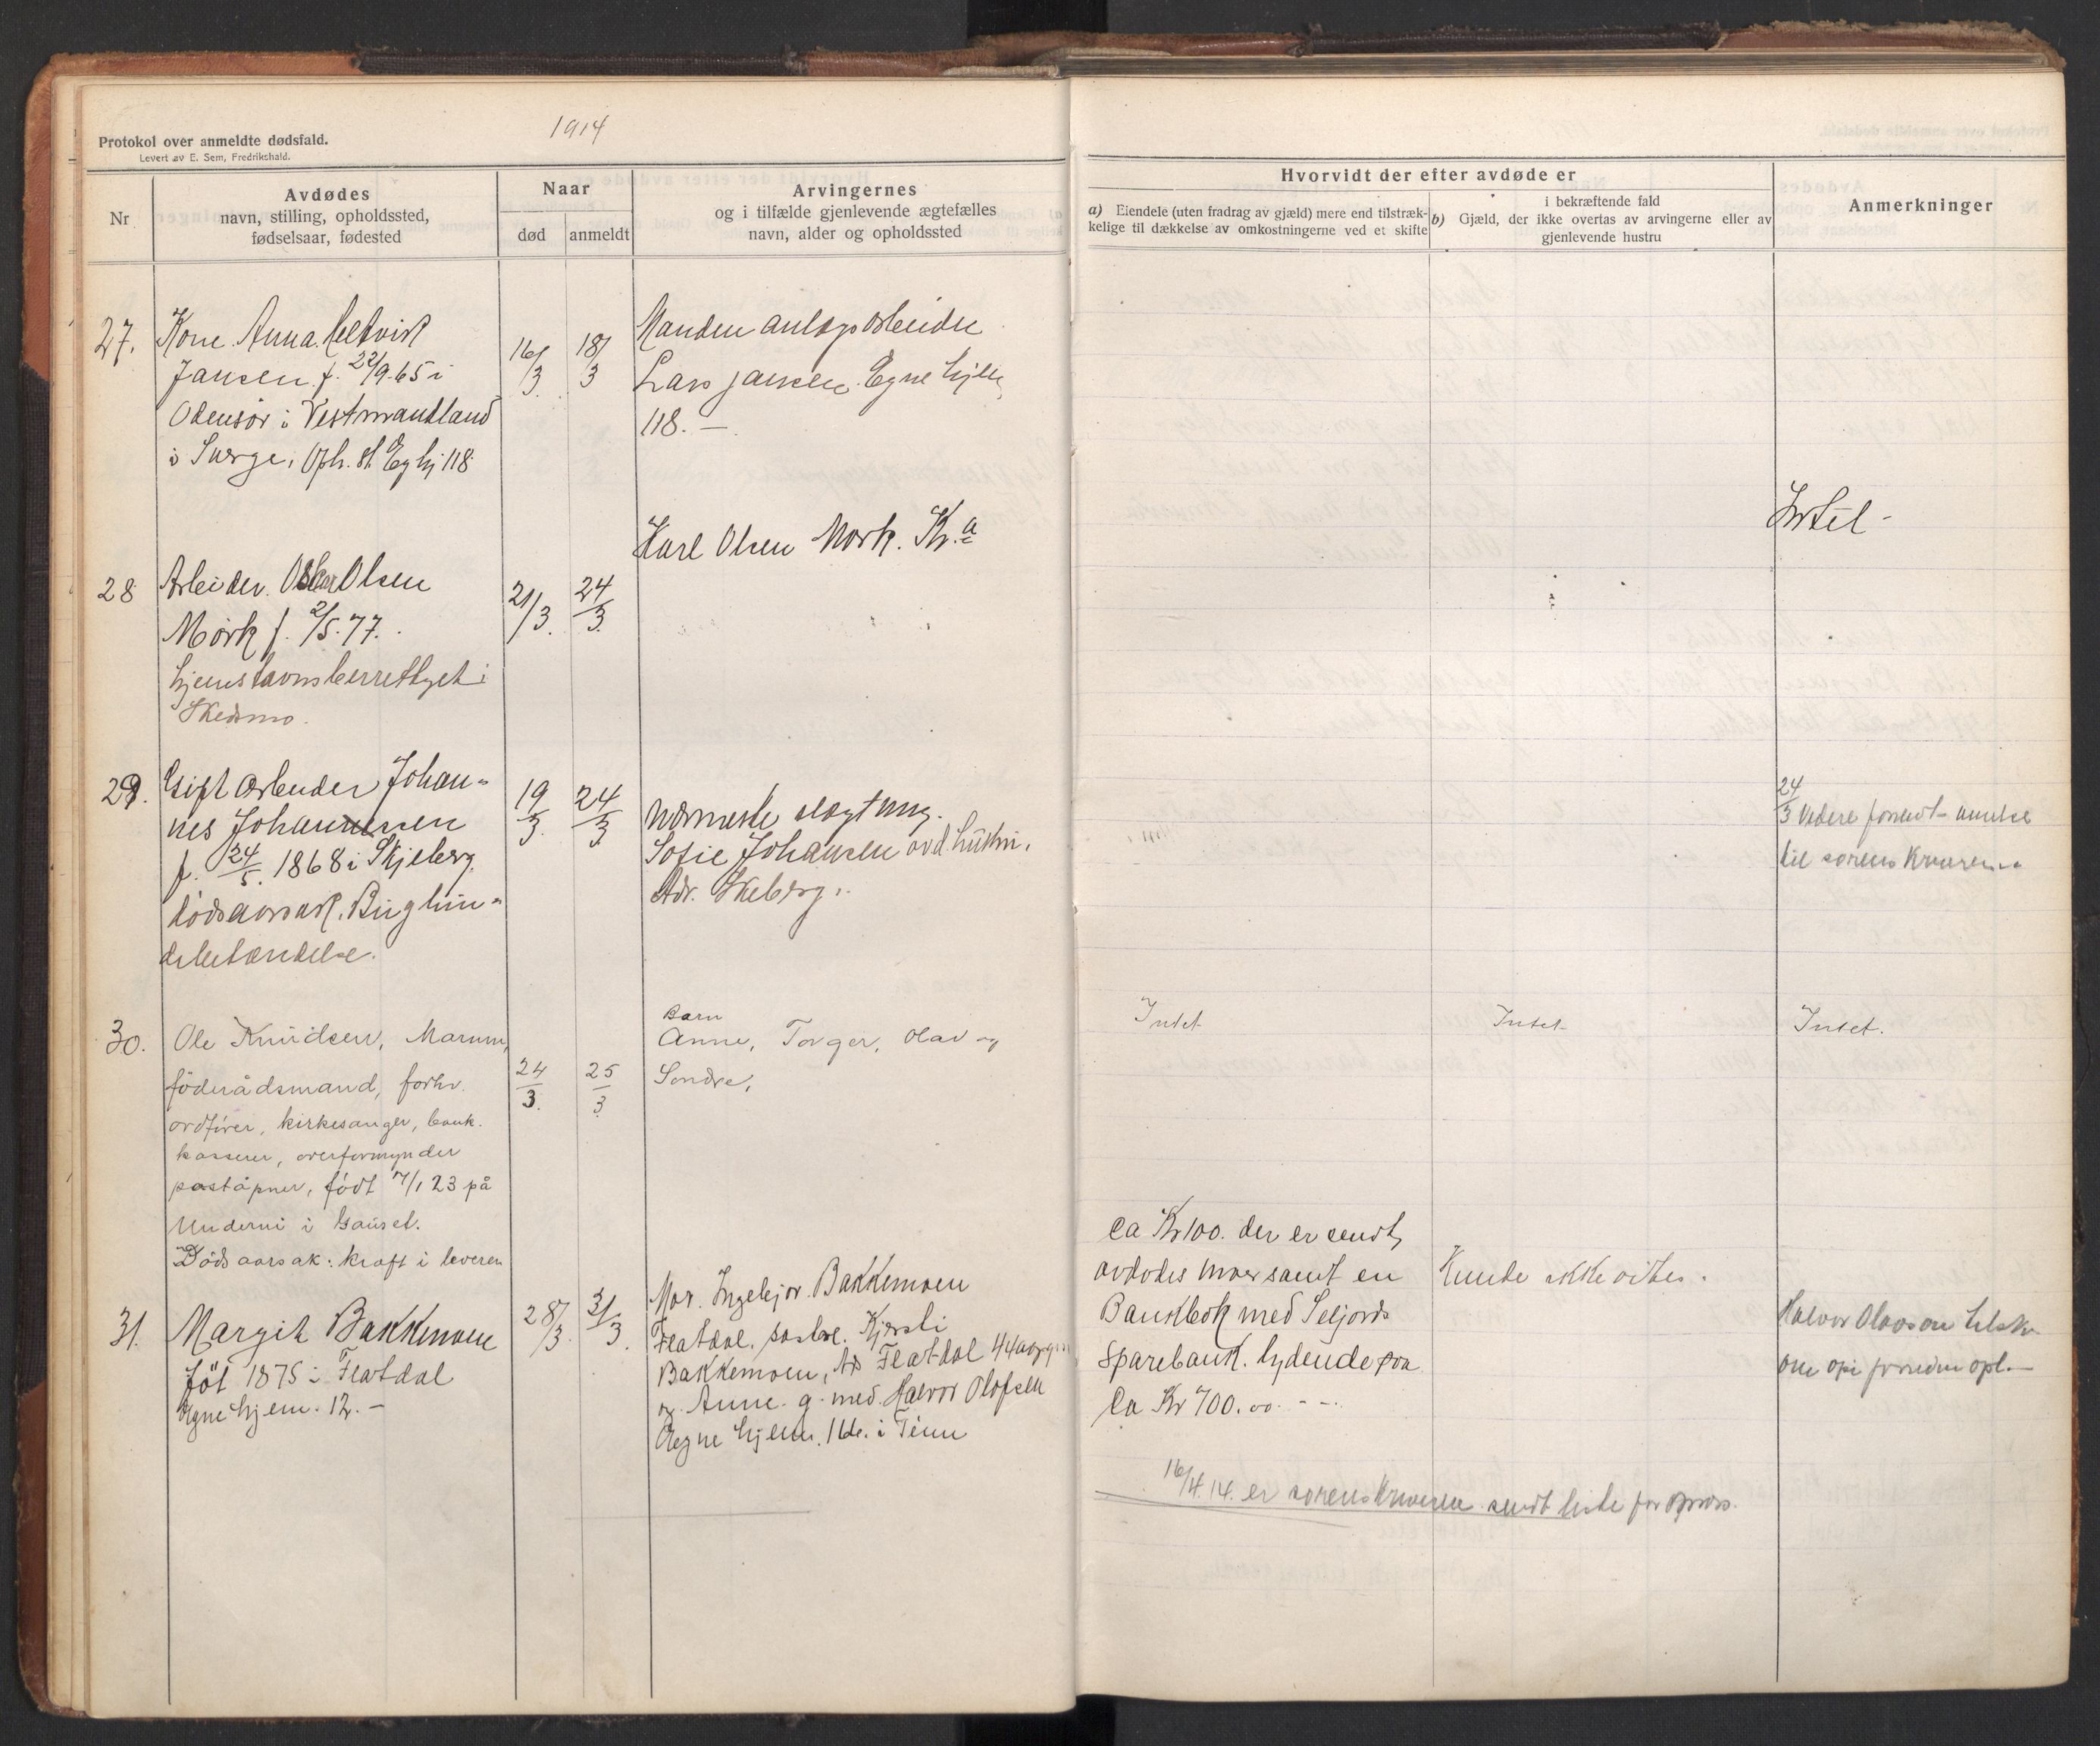 1914
Protokol over anmeldte dødsfald.
Levert av E. Sem, Fredrikshald.
Nr
Avdødes
navn, stilling, opholdssted,
fødselsaar, fødested
Naar
død
anmeldt
Arvingernes
og i tilfælde gjenlevende ægtefælles
navn, alder og opholdssted
Hvorvidt der efter avdøde er
a) Eiendele (uten fradrag av gjæld) mere end tilstræk-
kelige til dækkelse av omkostningerne ved et skifte
i bekræftende fald
b) Gjæld, der ikke overtas av arvingerne eller av
gjenlevende hustru
Anmerkninger
27.
Kone Anna
Jansen f. 22/9-65 i
Odensør i Vestmandland
i Sverge, Oph. st. Eg hj 118
16/3.
18/3
Manden anlegsarbeider
Lars Jansen Egne hjem
118. —
28
Arbeider. Oskar Olsen
Mørk f. 2/5.77.
hjemstavnsberrettiget i
Skedsmo.
21/3.
24/3.
Karl Olsen Mørk. Kr.a
Intet -
29.
Gift arbeider Johan=
nes Johannesen
f. 24/5. 1868 i Skjeberg.
dødsaarsak. Bughin=
debetændelse.
19/3.
24/3
nærmeste slægtning.
Sofie Johansen avd. hustru.
Adr. Skeberg.
24/3 Videre
til sorenskriveren
30.
Ole Knudsen, Marum,
föderådsmand, forhv.
ordfører, kirkesanger, bank.
kasserer, overformynder
poståpner, født 7/1 23 på
i Gausel.
Dödsaarsak: kræft i leveren
24/3.
25/3
Barn
Anne, Torger, Olav og
Sondre,
Intet
Intet
Intet.
31.
Margit Bakkemoen
föt 1875 i Flatdal
Egne hjem. 12. -
28/3.
31/3.
Mor. Ingebjør Bakkemoen
Flatdal. søstre. Kjersti
Bakkemoen, Flatdal 44 aar gm
og Anne g. med Halvor Olafsen
Egne hjem. i Tinn
Ca Kr 100. der er sendt
avdødes moer samt en
Bankbok med Seljords
Sparebank. lydende paa
Ca Kr 700.00. - -
Kunde ikke vites.
Halvor Olavsen
16/4.14. er sorenskriveren sendt liste for mars.